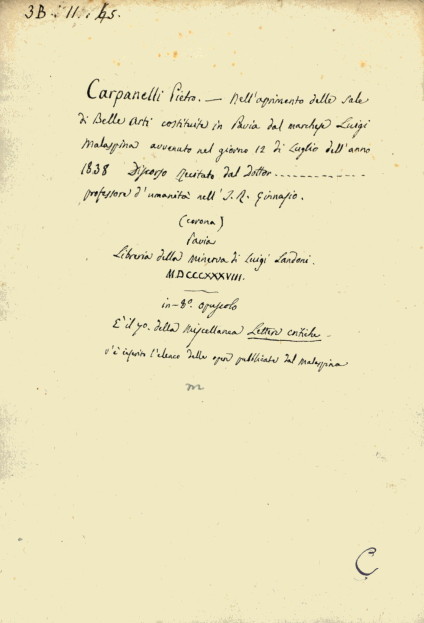 3B . 11 . 45.
Carpanelli Pietro. — Nell'aprimento delle sale
di Belle Arti costituite in Pavia dal marchese Luigi
Malaspina avvenuto nel giorno 12 di Luglio dell'anno
1838 Discorso recitato dal Dottor ..................
professore d'umanità nell' I. R. Ginnasio.
(corona)
Pavia
Libreria della Minerva di Luigi Landoni.
MDCCCXXXVIII.
in-8°. opuscolo
E' il 7°. della Miscellanea Lettere critiche -
v'è inserito l'elenco delle opere pubblicate dal Malaspina
m
C